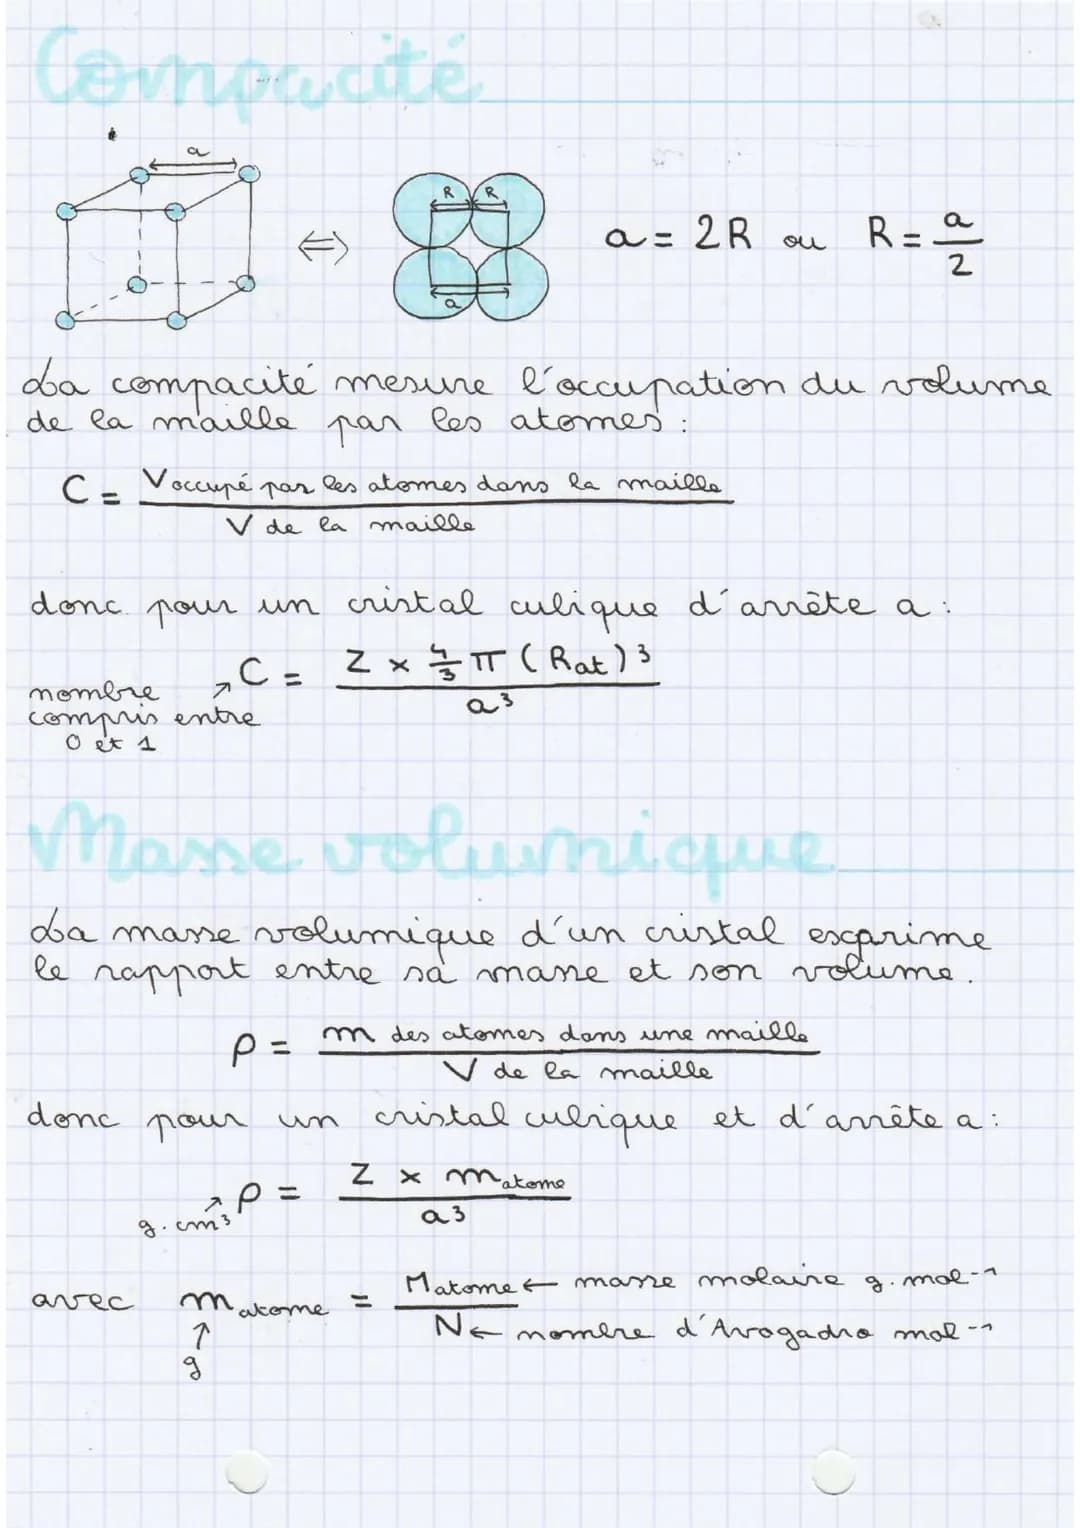 Compacité
a
R R
a
a = 2R ou R = a/2
La compacité mesure l'occupation du volume
de la maille par les atomes :
C = V occupé par les atomes dans la maille
V de la maille
donc pour un cristal cubique d'arrête a :
C = Z × 4/3 π (Rat)³
a³
nombre
compris entre
0 et 1
Masse volumique
La masse volumique d'un cristal exprime
le rapport entre sa masse et son volume.
ρ = m des atomes dans une maille
V de la maille
donc pour un cristal cubique et d'arrête a :
ρ = Z × m atome
a³
g.cm³
avec m atome = M atome ← masse molaire g.mol⁻¹
N ← nombre d'Avogadro mol⁻¹
g